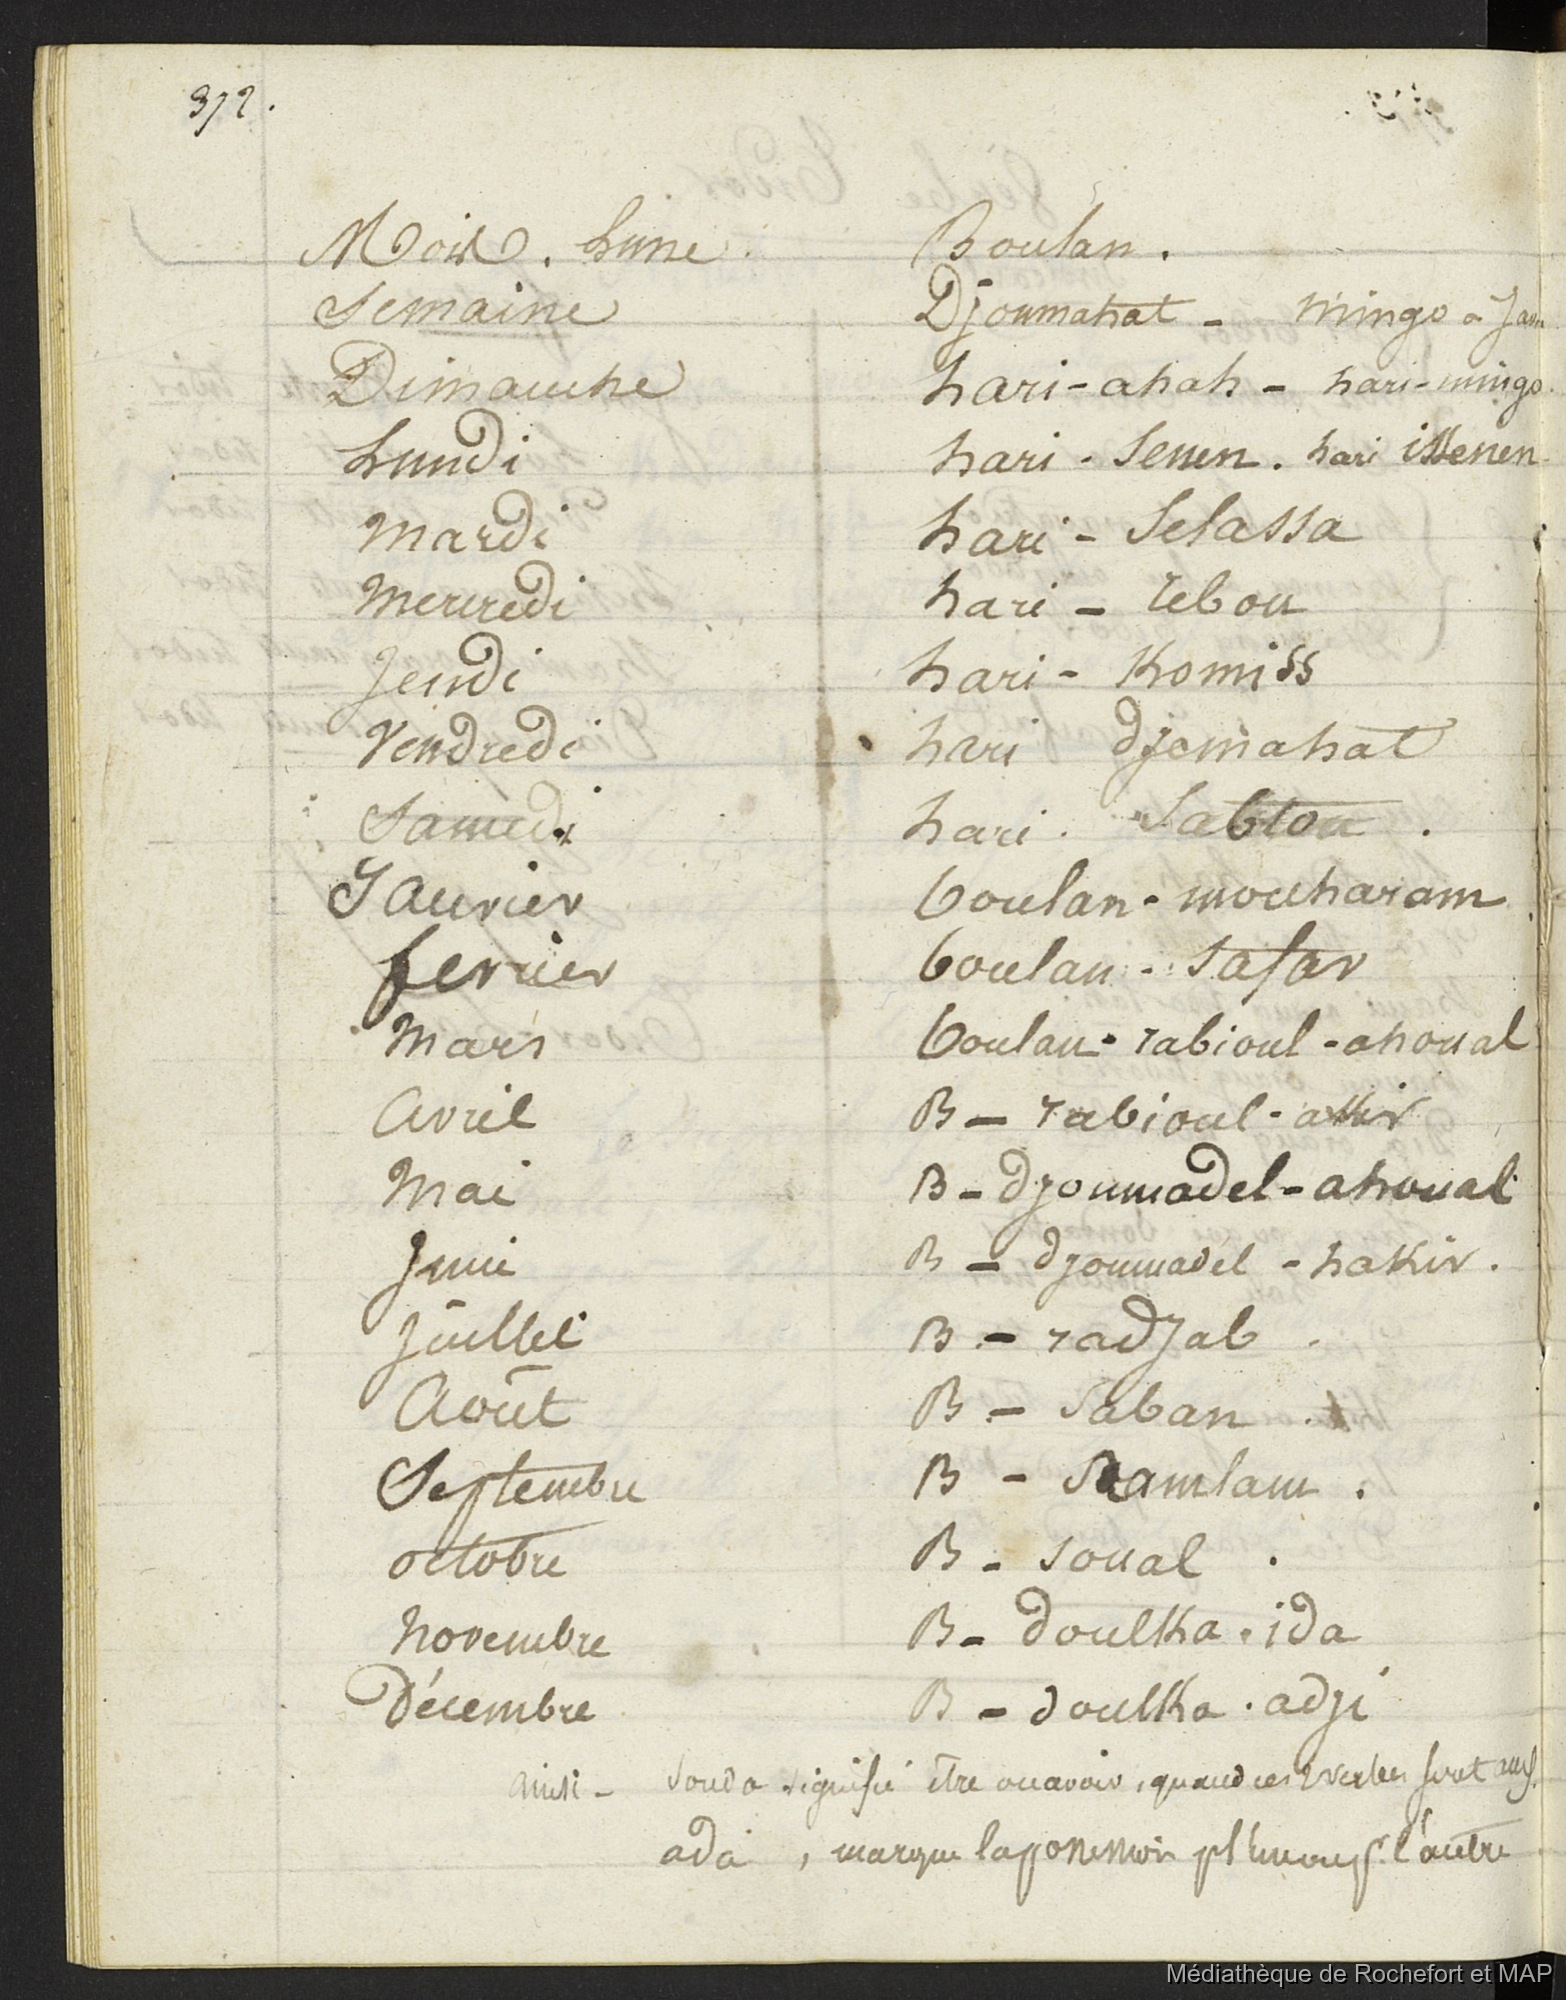 372.
Mois. Lune. Boulan.
Semaine Djoumahat - mingo a Java
Dimanche hari-ahah - hari-mingo.
Lundi hari - Senen. hari issenen
Mardi hari - Selassa
Mercredi hari - rebou
Jeudi hari - Komiss
Vendredi hari djemahat
Samedi hari. Sabtou.
Janvier boulan - mouharam
fevrier boulan - safar
Mars boulan - rabioul - ahoual
Avril B - rabioul - akir
Mai B - djoumadel - ahoual
Juin B - djoumadel - hakir.
Juillet B - radjab.
Août B - saban.
Septembre B - Ramlam.
octobre B - soual.
Novembre B - doulka. ida
Décembre B - doulka. adji
ainsi - souda signifie être ou avoir, quand ces 2 verbes sont
ada, marque la l'autre
Médiathèque de Rochefort et MAP